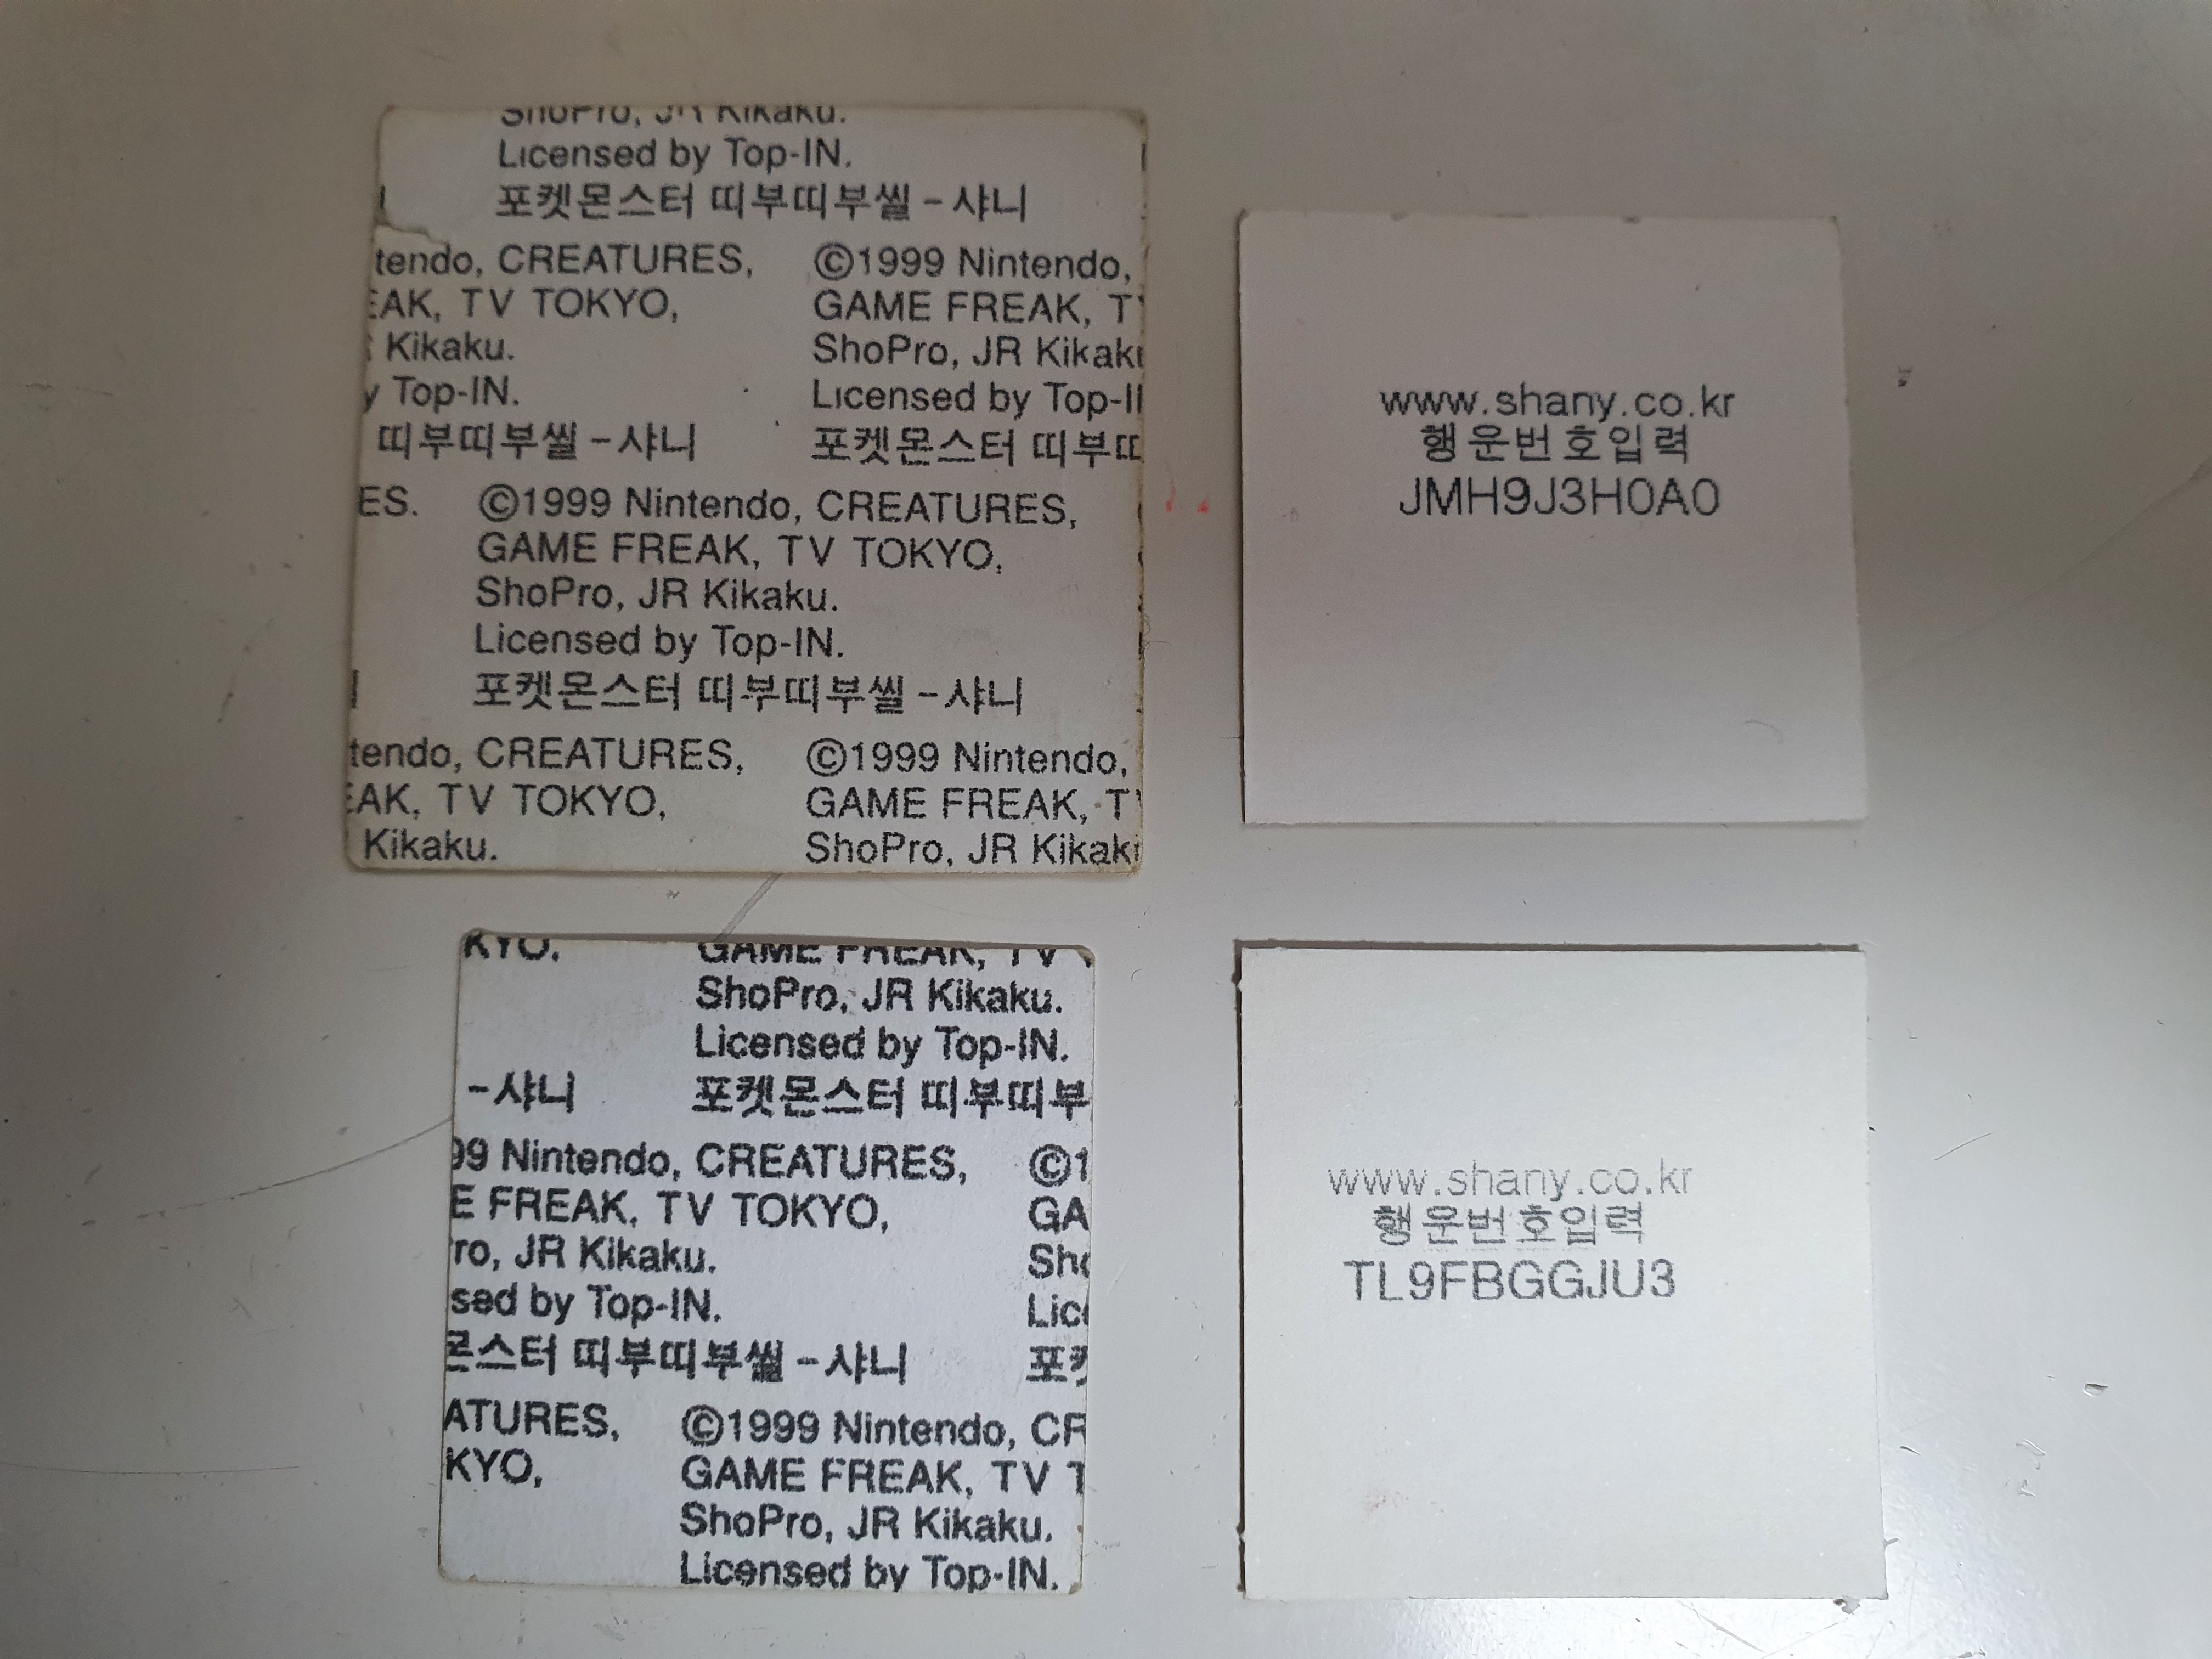 ShoPro, JR Kikaku.
Licensed by Top-IN.
포켓몬스터 띠부띠부씰-샤니
tendo, CREATURES,
EAK, TV TOKYO,
Kikaku.
y Top-IN.
띠부띠부씰-샤니
©1999 Nintendo,
GAME FREAK, T
ShoPro, JR Kikaku
Licensed by Top-I
포켓몬스터 띠부
ES.
©1999 Nintendo, CREATURES,
GAME FREAK, TV TOKYO,
ShoPro, JR Kikaku.
Licensed by Top-IN.
포켓몬스터 띠부띠부씰-샤니
tendo, CREATURES,
EAK, TV TOKYO,
Kikaku.
©1999 Nintendo,
GAME FREAK, T
ShoPro, JR Kikak
www.shany.co.kr
행운번호입력
JMH9J3H0A0
KYO.
-샤니
GAME FREAK, TV
ShoPro, JR Kikaku.
Licensed by Top-IN.
포켓몬스터 띠부띠부
99 Nintendo, CREATURES,
E FREAK, TV TOKYO,
ro, JR Kikaku.
sed by Top-IN.
몬스터 띠부띠부씰-샤니
©1
GA
Sho
Lic
포켓
ATURES,
KYO,
©1999 Nintendo, CR
GAME FREAK, TV T
ShoPro, JR Kikaku.
Licensed by Top-IN.
www.shany.co.kr
행운번호입력
TL9FBGGJU3